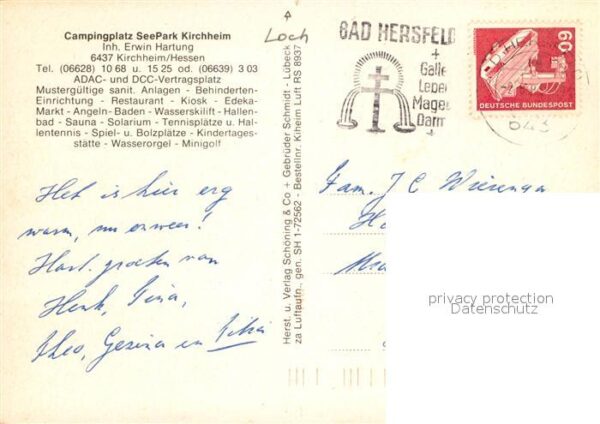 Campingplatz SeePark Kirchheim
Inh. Erwin Hartung
6437 Kirchheim/Hessen
Tel. (06628) 10 68 u. 15 25 od. (06639) 3 03
ADAC- und DCC-Vertragsplatz
Mustergültige sanit. Anlagen - Behinderten-
Einrichtung - Restaurant - Kiosk - Edeka-
Markt - Angeln - Baden - Wasserskilift - Hallen-
bad - Sauna - Solarium - Tennisplätze u. Hal-
lentennis - Spiel- u. Bolzplätze - Kindertages-
stätte - Wasserorgel - Minigolf
Het is hier erg
warm, nu onweer!
Hart. groeten van
Henk, Tina,
Theo, Gezina en
Loch
Herst. u. Verlag Schöning & Co + Gebrüder Schmidt - Lübeck
za Luftaufn., gen. SH 1-72562 - Bestellnr. Kiheim Luft RS 8937
BAD HERSFELD
+
Galle
Leber
Magen
Darm
+
60
DEUTSCHE BUNDESPOST
643
Fam. J C Wiersenga
privacy protection
Datenschutz